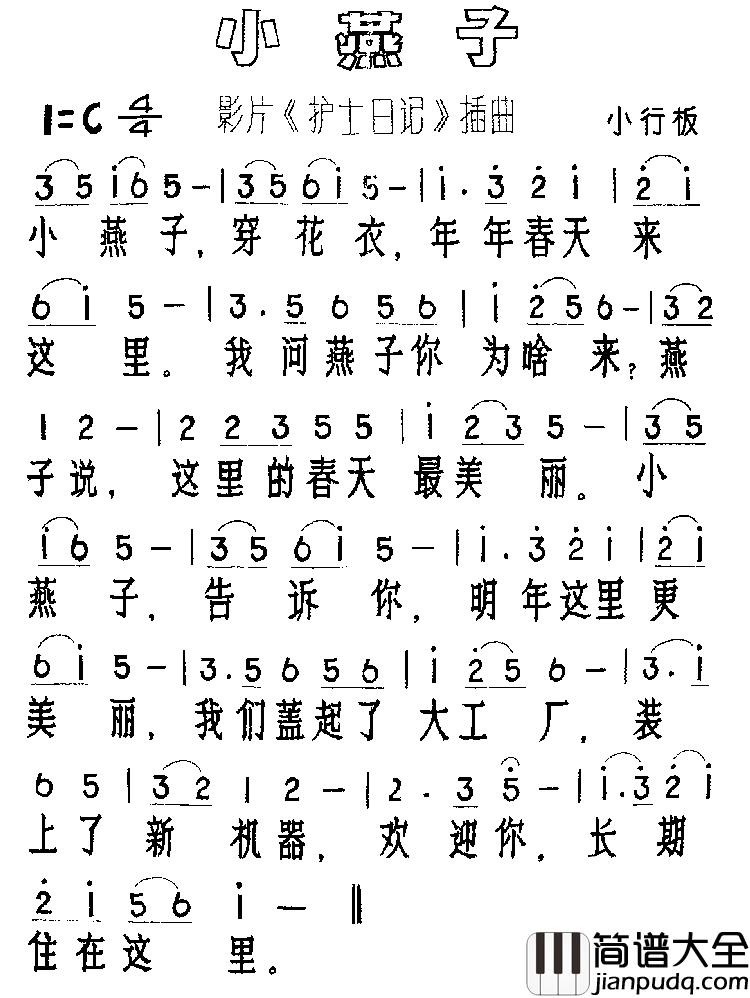 小燕子
1=C 4/4 影片《护士日记》插曲 小行板
3 5 i 6 5 — | 3 5 6 i 5 — | i . 3 2 i | 2 i
小燕子，穿花衣，年年春天来
6 i 5 — | 3 . 5 6 5 6 | i 2 5 6 — | 3 2
这里。我问燕子你为啥来？燕
1 2 — | 2 2 3 5 5 | i 2 3 5 — | 3 5
子说，这里的春天最美丽。小
i 6 5 — | 3 5 6 i 5 — | i . 3 2 i | 2 i
燕子，告诉你，明年这里更
6 i 5 — | 3 . 5 6 5 6 | i 2 5 6 — | 3 . i
美丽，我们蓋起了大工厂，装
6 5 | 3 2 1 2 — | 2 . 3 5 — | i . 3 2 i
上了新机器，欢迎你，长期
2 i 5 6 i — ‖
住在这里。
简谱大全
jianpudq.com